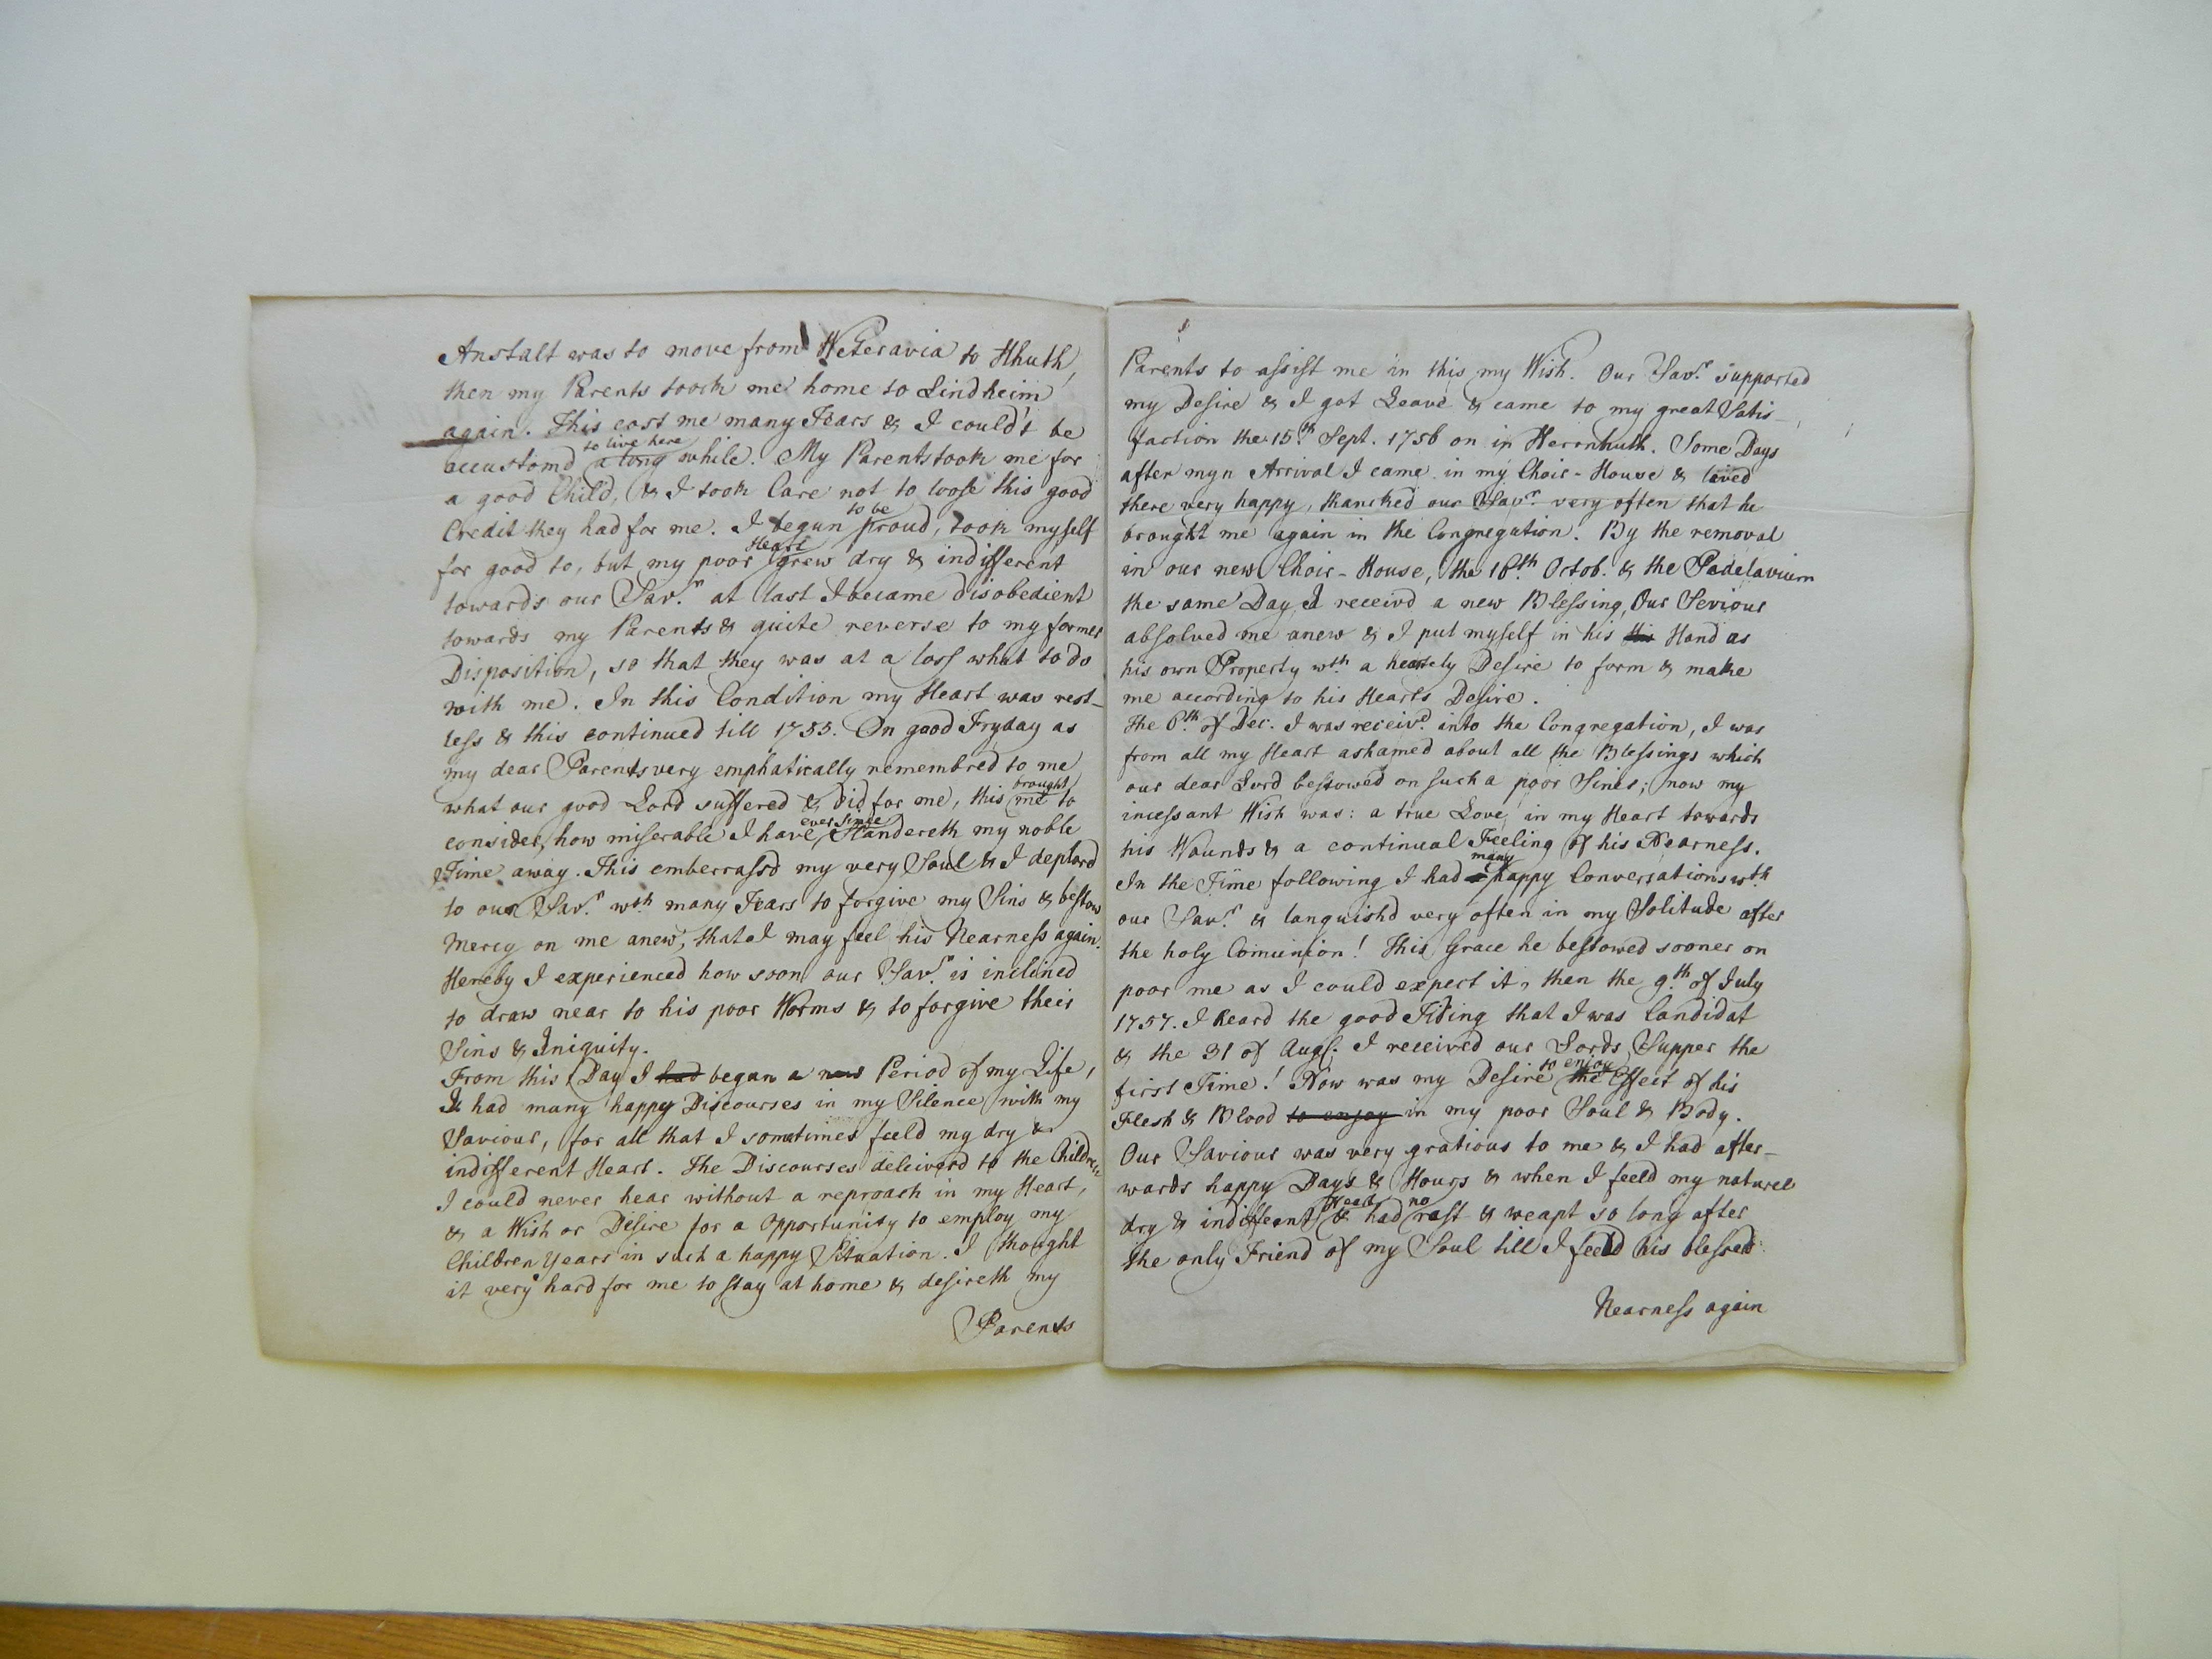 Anstalt was to move from Weteravia to Hhuth,
then my Parents toock me home to Lindheim
again. This cost me many Tears & I could't be
to live here
accustomd a long while. My Parents took me for
a good Child, & I took Care not to loose this good
to be
Credit they had for me. I begun proud, took myself
Heart
for good to, but my poor grew dry & indifferent
towards our Sav.r at last I became disobedient
towards my Parents & quite reverse to my former
Disposition, so that they was at a loss what to do
with me. In this Condition my Heart was rest-
less & this continued till 1755. On good Fryday as
my dear Parents very emphatically remembred to me
brought
what our good Lord suffered & did for me, this me to
ever since
consider, how miserable I have Handereth my noble
Time away. This emberrassd my very Soul & I deplord
to our Sav.r wth many Tears to forgive my Sins & bestow
Mercy on me anew, that I may feel his Nearness again.
Hereby I experienced how soon our Sav.r is inclined
to draw near to his poor Worms & to forgive their
Sins & Iniquity.
From this Day I had began a new Period of my Life,
I had many happy Discourses in my Silence with my
Saviour, for all that I sometimes feeld my dry &
indifferent Heart. The Discourses deliverd to the Children
I could never hear without a reproach in my Heart,
& a Wish or Desire for a Opportunity to employ my
Children Years in such a happy Situation. I thought
it very hard for me to stay at home & desireth my
Parents
Parents to assist me in this my Wish. Our Sav.r supported
my Desire & I got Leave & came to my great Satis-
faction the 15.th Sept. 1756 on in Herrnhuth. Some Days
after myn Arrival I came in my Choir-House & lived
there very happy, thancked our Sav.r very often that he
brought me again in the Congregation. By the removal
in our new Choir-House, the 16.th Octob. & the Pedelavium
the same Day I receivd a new Blessing, Our Saviour
absolved me anew & I put myself in his his Hand as
his own Property wth a heartely Desire to form & make
me according to his Hearts Desire.
The 6.th of Dec. I was receivd into the Congregation, I was
from all my Heart ashamed about all the Blessings which
our dear Lord bestowed on such a poor Siner; now my
incessant Wish was: a true Love in my Heart towards
his Wounds & a continual Feeling of his Nearness.
many
In the Time following I had happy Conversations wth
our Sav.r & languishd very often in my Solitude after
the holy Comunion! This Grace he bestowed sooner on
poor me as I could expect it, then the 9.th of July
1757. I heard the good Tiding that I was Candidat
& the 31 of Augs. I received our Lords Supper the
to enjoy
first Time! Now was my Desire the Effect of his
Flesh & Blood to enjoy in my poor Soul & Body.
Our Saviour was very gratious to me & I had after-
wards happy Days & Hours & when I feeld my naturel
Heart no
dry & indifferent & had rest & weapt so long after
the only Friend of my Soul till I feeld his blessed
Nearness again